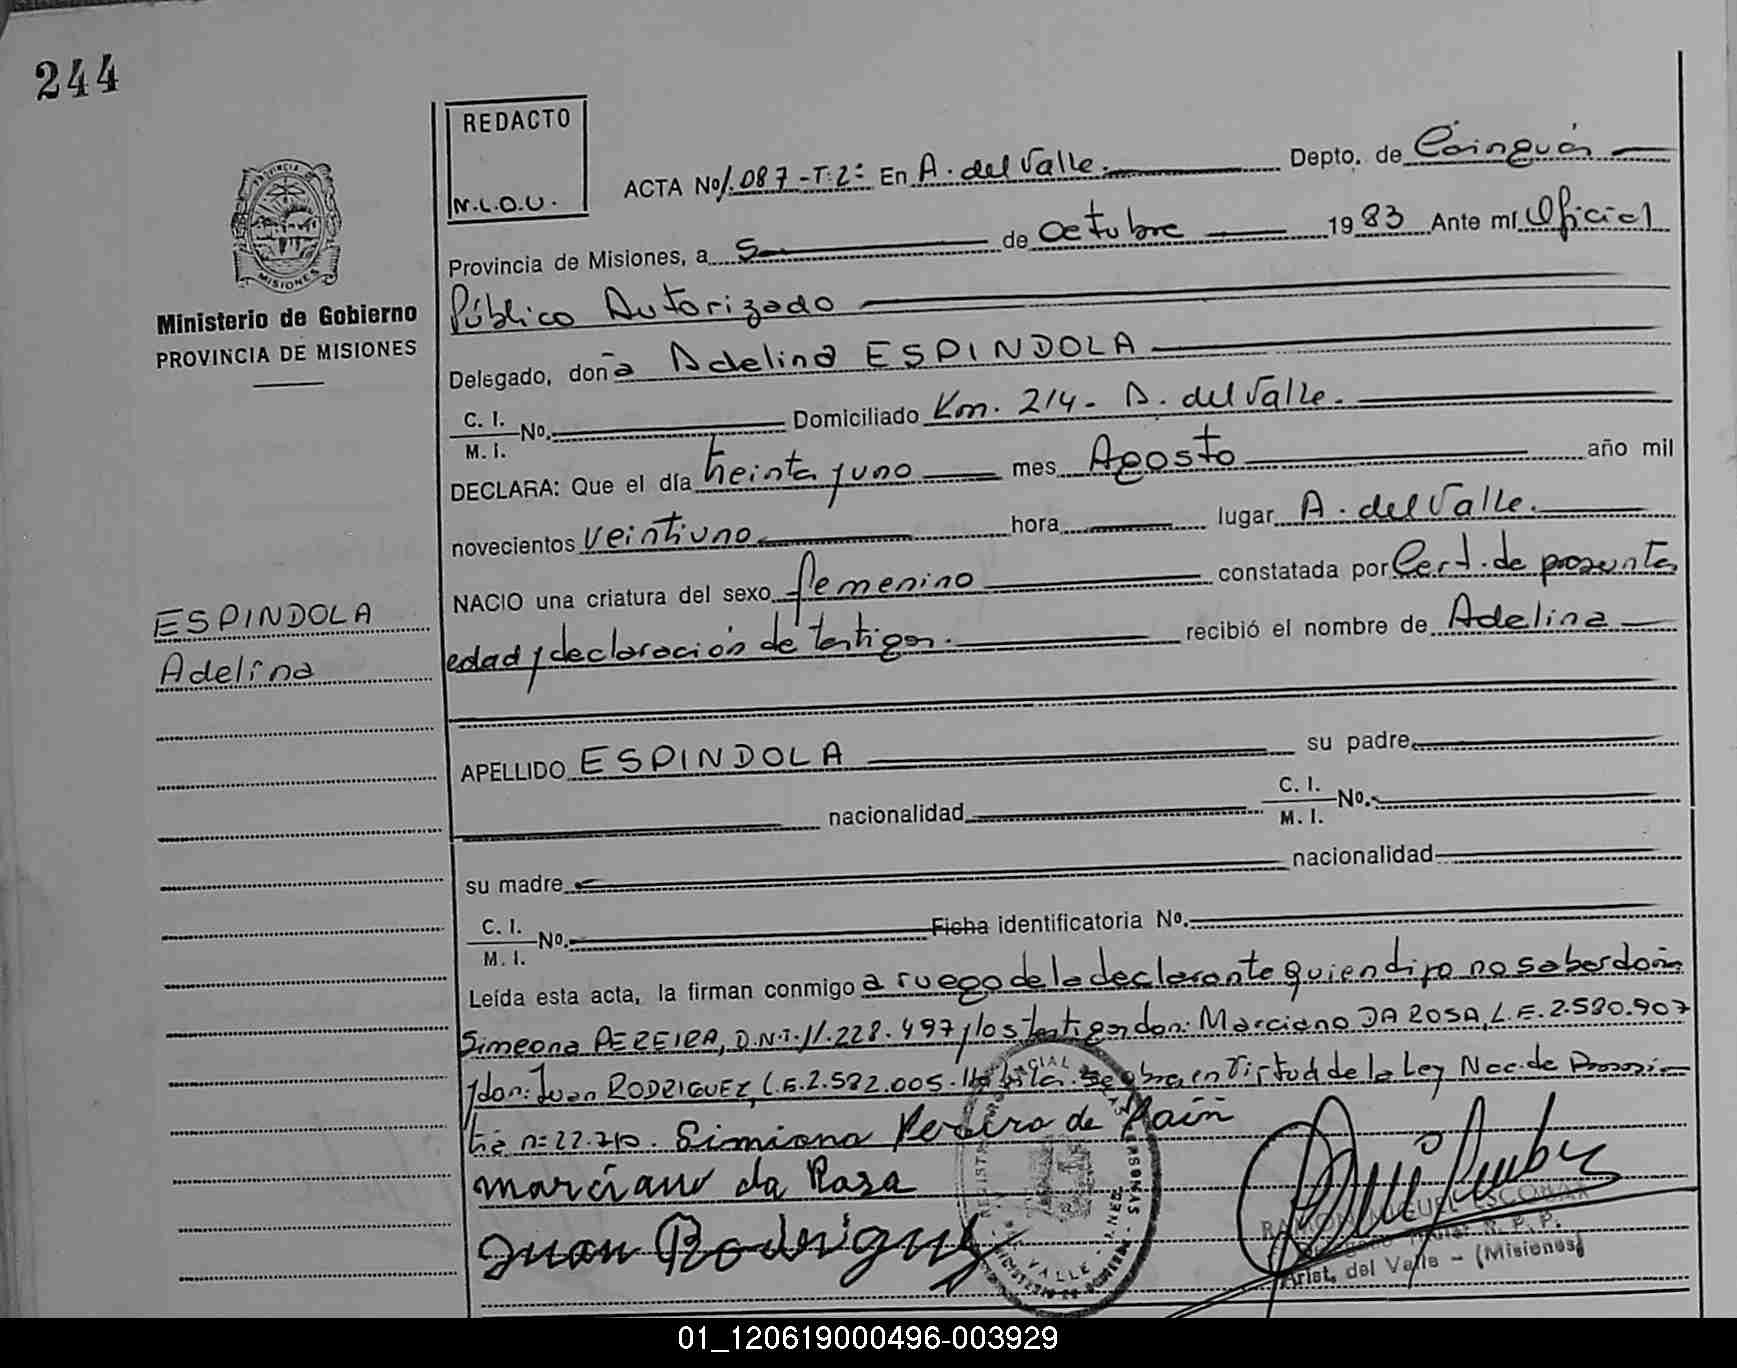 244
REDACTO
N.L.O.U.
ACTA No 1.087-T:2º En A. del Valle. Depto. de Cainguás
Provincia de Misiones, a 5 de Octubre 1983 Ante mí Oficial
Público Autorizado
MISIONES
Ministerio de Gobierno
PROVINCIA DE MISIONES
Delegado, doña Adelina ESPINDOLA
C. I.
M. I. No. Domiciliado Km. 214- A. del Valle.
DECLARA: Que el día treinta y uno mes Agosto año mil
novecientos veintiuno hora lugar A. del Valle.
NACIO una criatura del sexo femenino constatada por Cert. de presunta
edad y declaración de testigos. recibió el nombre de Adelina
ESPINDOLA
Adelina
APELLIDO ESPINDOLA su padre
nacionalidad C. I.
M. I. No.
su madre nacionalidad
C. I.
M. I. No. Ficha identificatoria No.
Leída esta acta, la firman conmigo a ruego de la declarante quien dijo no saber doña
Simeona PEREIRA, D.N.I. 11.228.497 y los testigos don: Marciano DA ROSA, L.E. 2.580.907
y don: Juan RODRIGUEZ, L.E. 2.582.005. Se labra en Virtud de la Ley Nac. de
nº 22.710. Simiona Pereira de
marciano da Rosa
Juan Rodriguez
RAMON MIGUEL ESCOBAR
R. P. P.
Arist. del Valle - (Misiones)
01_120619000496-003929